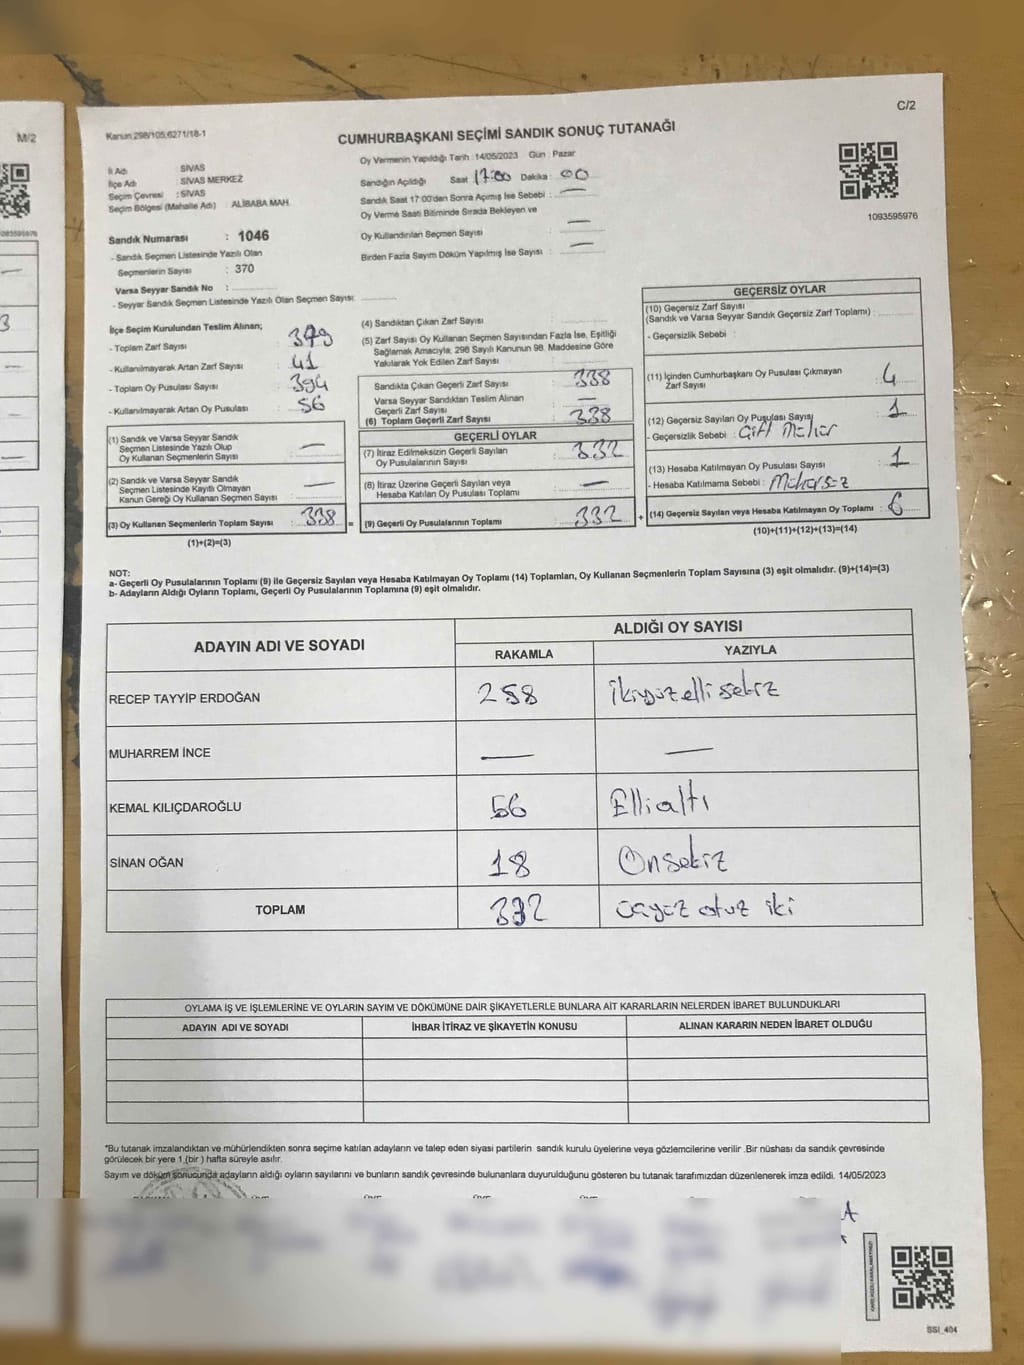 M/2
C/2
Kanun 298/105;6271/18-1
CUMHURBAŞKANI SEÇİMİ SANDIK SONUÇ TUTANAĞI
1093595976
İli Adı : SİVAS
İlçe Adı : SİVAS MERKEZ
Seçim Çevresi : SİVAS
Seçim Bölgesi (Mahalle Adı) : ALİBABA MAH.
Sandık Numarası : 1046
- Sandık Seçmen Listesinde Yazılı Olan
Seçmenlerin Sayısı : 370
Varsa Seyyar Sandık No :
- Seyyar Sandık Seçmen Listesinde Yazılı Olan Seçmen Sayısı:
Oy Vermenin Yapıldığı Tarih : 14/05/2023 Gün : Pazar
Sandığın Açıldığı Saat 17:00 Dakika : 00
Sandık Saat 17:00'den Sonra Açımış İse Sebebi : —
Oy Verme Saati Bitiminde Sırada Bekleyen ve
Oy Kullandırılan Seçmen Sayısı : —
Birden Fazla Sayım Döküm Yapılmış İse Sayısı : —
İlçe Seçim Kurulundan Teslim Alınan;
- Toplam Zarf Sayısı : 379
- Kullanılmayarak Artan Zarf Sayısı : 41
- Toplam Oy Pusulası Sayısı : 394
- Kullanılmayarak Artan Oy Pusulası : 56
(1) Sandık ve Varsa Seyyar Sandık
Seçmen Listesinde Yazılı Olup
Oy Kullanan Seçmenlerin Sayısı : —
(2) Sandık ve Varsa Seyyar Sandık
Seçmen Listesinde Kayıtlı Olmayan
Kanun Gereği Oy Kullanan Seçmen Sayısı : —
(3) Oy Kullanan Seçmenlerin Toplam Sayısı : 338 =
(1)+(2)=(3)
(4) Sandıktan Çıkan Zarf Sayısı :
(5) Zarf Sayısı Oy Kullanan Seçmen Sayısından Fazla İse, Eşitliği
Sağlamak Amacıyla, 298 Sayılı Kanunun 98. Maddesine Göre
Yakılarak Yok Edilen Zarf Sayısı :
Sandıkta Çıkan Geçerli Zarf Sayısı : 338
Varsa Seyyar Sandıktan Teslim Alınan
Geçerli Zarf Sayısı : —
(6) Toplam Geçerli Zarf Sayısı : 338
GEÇERLİ OYLAR
(7) İtiraz Edilmeksizin Geçerli Sayılan
Oy Pusulalarının Sayısı : 332
(8) İtiraz Üzerine Geçerli Sayılan veya
Hesaba Katılan Oy Pusulası Toplamı : —
(9) Geçerli Oy Pusulalarının Toplamı : 332 +
GEÇERSİZ OYLAR
(10) Geçersiz Zarf Sayısı
(Sandık ve Varsa Seyyar Sandık Geçersiz Zarf Toplamı) :
- Geçersizlik Sebebi :
(11) İçinden Cumhurbaşkanı Oy Pusulası Çıkmayan
Zarf Sayısı : 4
(12) Geçersiz Sayılan Oy Pusulası Sayısı : 1
- Geçersizlik Sebebi : Çift Mühür
(13) Hesaba Katılmayan Oy Pusulası Sayısı : 1
- Hesaba Katılmama Sebebi : Mühürsüz
(14) Geçersiz Sayılan veya Hesaba Katılmayan Oy Toplamı : 6
(10)+(11)+(12)+(13)=(14)
NOT:
a- Geçerli Oy Pusulalarının Toplamı (9) ile Geçersiz Sayılan veya Hesaba Katılmayan Oy Toplamı (14) Toplamları, Oy Kullanan Seçmenlerin Toplam Sayısına (3) eşit olmalıdır. (9)+(14)=(3)
b- Adayların Aldığı Oyların Toplamı, Geçerli Oy Pusulalarının Toplamına (9) eşit olmalıdır.
ADAYIN ADI VE SOYADI
ALDIĞI OY SAYISI
RAKAMLA YAZIYLA
RECEP TAYYİP ERDOĞAN 258 ikiyüzellisekiz
MUHARREM İNCE — —
KEMAL KILIÇDAROĞLU 56 Ellialtı
SİNAN OĞAN 18 Onsekiz
TOPLAM 332 üçyüz otuz iki
OYLAMA İŞ VE İŞLEMLERİNE VE OYLARIN SAYIM VE DÖKÜMÜNE DAİR ŞİKAYETLERLE BUNLARA AİT KARARLARIN NELERDEN İBARET BULUNDUKLARI
ADAYIN ADI VE SOYADI İHBAR İTİRAZ VE ŞİKAYETİN KONUSU ALINAN KARARIN NEDEN İBARET OLDUĞU
*Bu tutanak imzalandıktan ve mühürlendikten sonra seçime katılan adayların ve talep eden siyasi partilerin sandık kurulu üyelerine veya gözlemcilerine verilir .Bir nüshası da sandık çevresinde
görülecek bir yere 1 (bir ) hafta süreyle asılır.
Sayım ve döküm sonucunda adayların aldığı oyların sayılarını ve bunların sandık çevresinde bulunanlara duyurulduğunu gösteren bu tutanak tarafımızdan düzenlenerek imza edildi. 14/05/2023
SSI_404